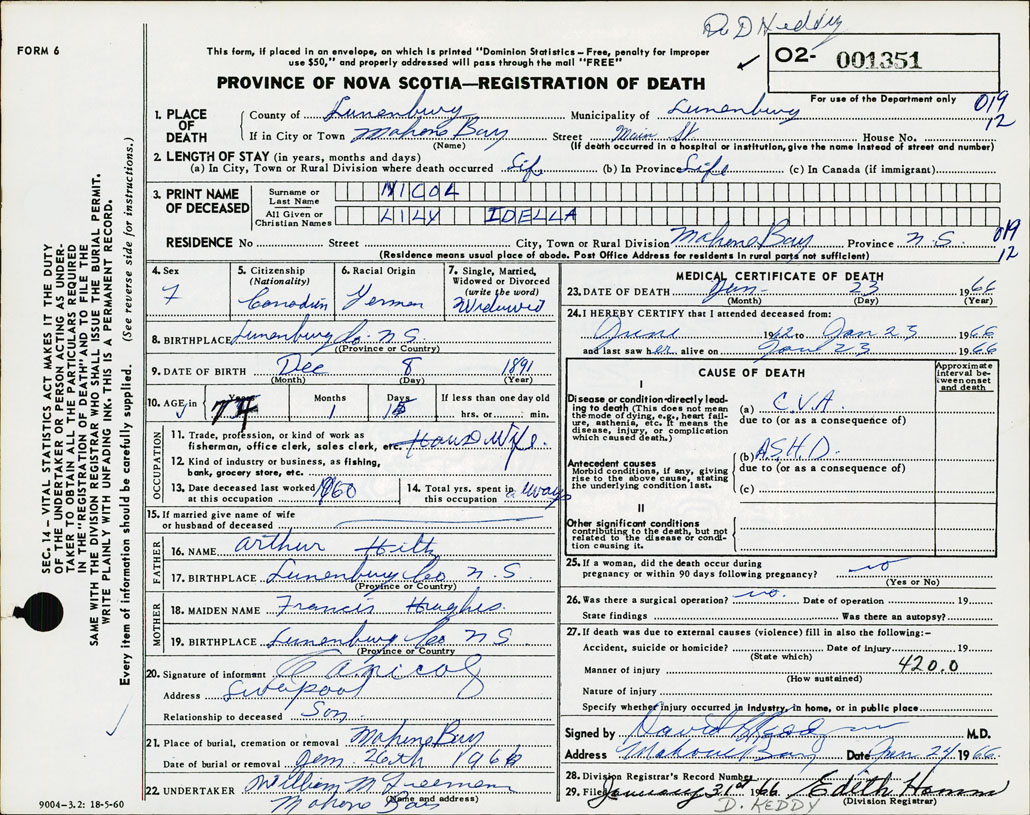 Dr D Keddy
FORM 6
This form, if placed in an envelope, on which is printed "Dominion Statistics–Free, penalty for improper
use $50," and properly addressed will pass through the mail "FREE"
02- 001351
For use of the Department only
PROVINCE OF NOVA SCOTIA—REGISTRATION OF DEATH
019
12
1. PLACE OF DEATH
County of Lunenburg Municipality of Lunenburg
If in City or Town Mahone Bay Street Main St House No.
(Name) (If death occurred in a hospital or institution, give the name instead of street and number)
2. LENGTH OF STAY (in years, months and days)
(a) In City, Town or Rural Division where death occurred Life (b) In Province Life (c) In Canada (if immigrant)
3. PRINT NAME OF DECEASED
Surname or Last Name NICOL
All Given or Christian Names LILY IDELLA
RESIDENCE No Street City, Town or Rural Division Mahone Bay Province N.S. 019
12
(Residence means usual place of abode. Post Office Address for residents in rural parts not sufficient)
4. Sex F
5. Citizenship (Nationality) Canadian
6. Racial Origin German
7. Single, Married, Widowed or Divorced (write the word) Widowed
8. BIRTHPLACE Lunenburg Co. N.S.
(Province or Country)
9. DATE OF BIRTH Dec 8 1891
(Month) (Day) (Year)
10. AGE in Years 74 Months 1 Days 15 If less than one day old
hrs. or min.
OCCUPATION
11. Trade, profession, or kind of work as
fisherman, office clerk, sales clerk, etc. HousWife.
12. Kind of industry or business, as fishing,
bank, grocery store, etc.
13. Date deceased last worked at this occupation 1960
14. Total yrs. spent in this occupation always
15. If married give name of wife
or husband of deceased
FATHER
16. NAME Arthur Hiltz
17. BIRTHPLACE Lunenburg Co. N.S
(Province or Country)
MOTHER
18. MAIDEN NAME Francis Hughes.
19. BIRTHPLACE Lunenburg Co N S
(Province or Country)
20. Signature of informant Nicol
Address Liverpool
Relationship to deceased Son
21. Place of burial, cremation or removal Mahone Bay
Date of burial or removal Jan. 26th 1966
22. UNDERTAKER William M Freeman
Mahone Bay
(Name and address)
MEDICAL CERTIFICATE OF DEATH
23. DATE OF DEATH Jan- 23 1966
(Month) (Day) (Year)
24. I HEREBY CERTIFY that I attended deceased from:
June 1962 to Jan 23 1966
and last saw her alive on Jan 23 1966
CAUSE OF DEATH
Approximate interval between onset and death
I
Disease or condition directly leading
to death (This does not mean
the mode of dying, e.g., heart failure,
asthenia, etc. It means the
disease, injury, or complication
which caused death.)
(a) C.V.A.
due to (or as a consequence of)
Antecedent causes
Morbid conditions, if any, giving
rise to the above cause, stating
the underlying condition last.
(b) A.S.H.D.
due to (or as a consequence of)
(c)
II
Other significant conditions
contributing to the death, but not
related to the disease or condition
causing it.
25. If a woman, did the death occur during
pregnancy or within 90 days following pregnancy? no
(Yes or No)
26. Was there a surgical operation? no. Date of operation 19
State findings Was there an autopsy?
27. If death was due to external causes (violence) fill in also the following:–
Accident, suicide or homicide? Date of injury 19
(State which)
Manner of injury 420.0
(How sustained)
Nature of injury
Specify whether injury occurred in industry, in home, or in public place
Signed by David Keddy M.D.
Address Mahone Bay Date Jan 24 1966.
28. Division Registrar's Record Number
29. Filed January 31st 1966 Edith Hamm
D. KEDDY (Division Registrar)
SEC. 14 – VITAL STATISTICS ACT MAKES IT THE DUTY
OF THE UNDERTAKER OR PERSON ACTING AS UNDERTAKER
TO OBTAIN ALL THE PARTICULARS REQUIRED
IN THE "REGISTRATION OF DEATH" AND TO FILE THE
SAME WITH THE DIVISION REGISTRAR WHO SHALL ISSUE THE BURIAL PERMIT.
WRITE PLAINLY WITH UNFADING INK. THIS IS A PERMANENT RECORD.
Every item of information should be carefully supplied. (See reverse side for instructions.)
9004–3.2: 18-5-60